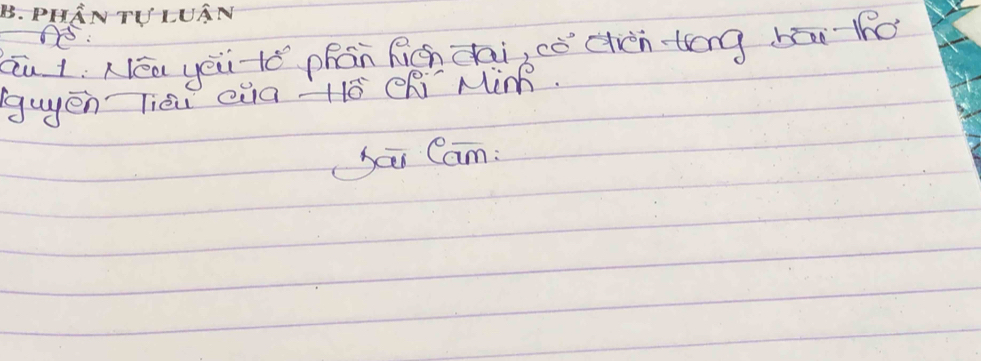 B. PHẦN TỰ LUẬN
Đề:
Câu 1: Nêu yếu tố phần hiện đại, cổ điển trong bài thơ
Nguyên Tiêu của Hồ Chí Minh.
Bài làm: